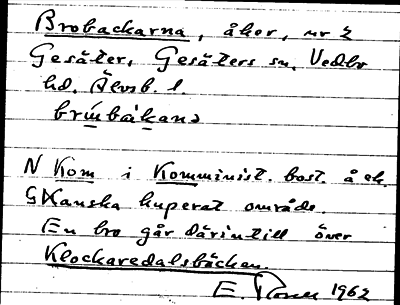 Brobackarna, åker, nr 2
Gesäter, Gesäters sn, Vedbo
hd. Älvsb. l.
N Kom i Komminist. bost. å ek.
Ganska kuperat område.
En bro går därintill över
Klockaredalsbäcken.
E. 1962